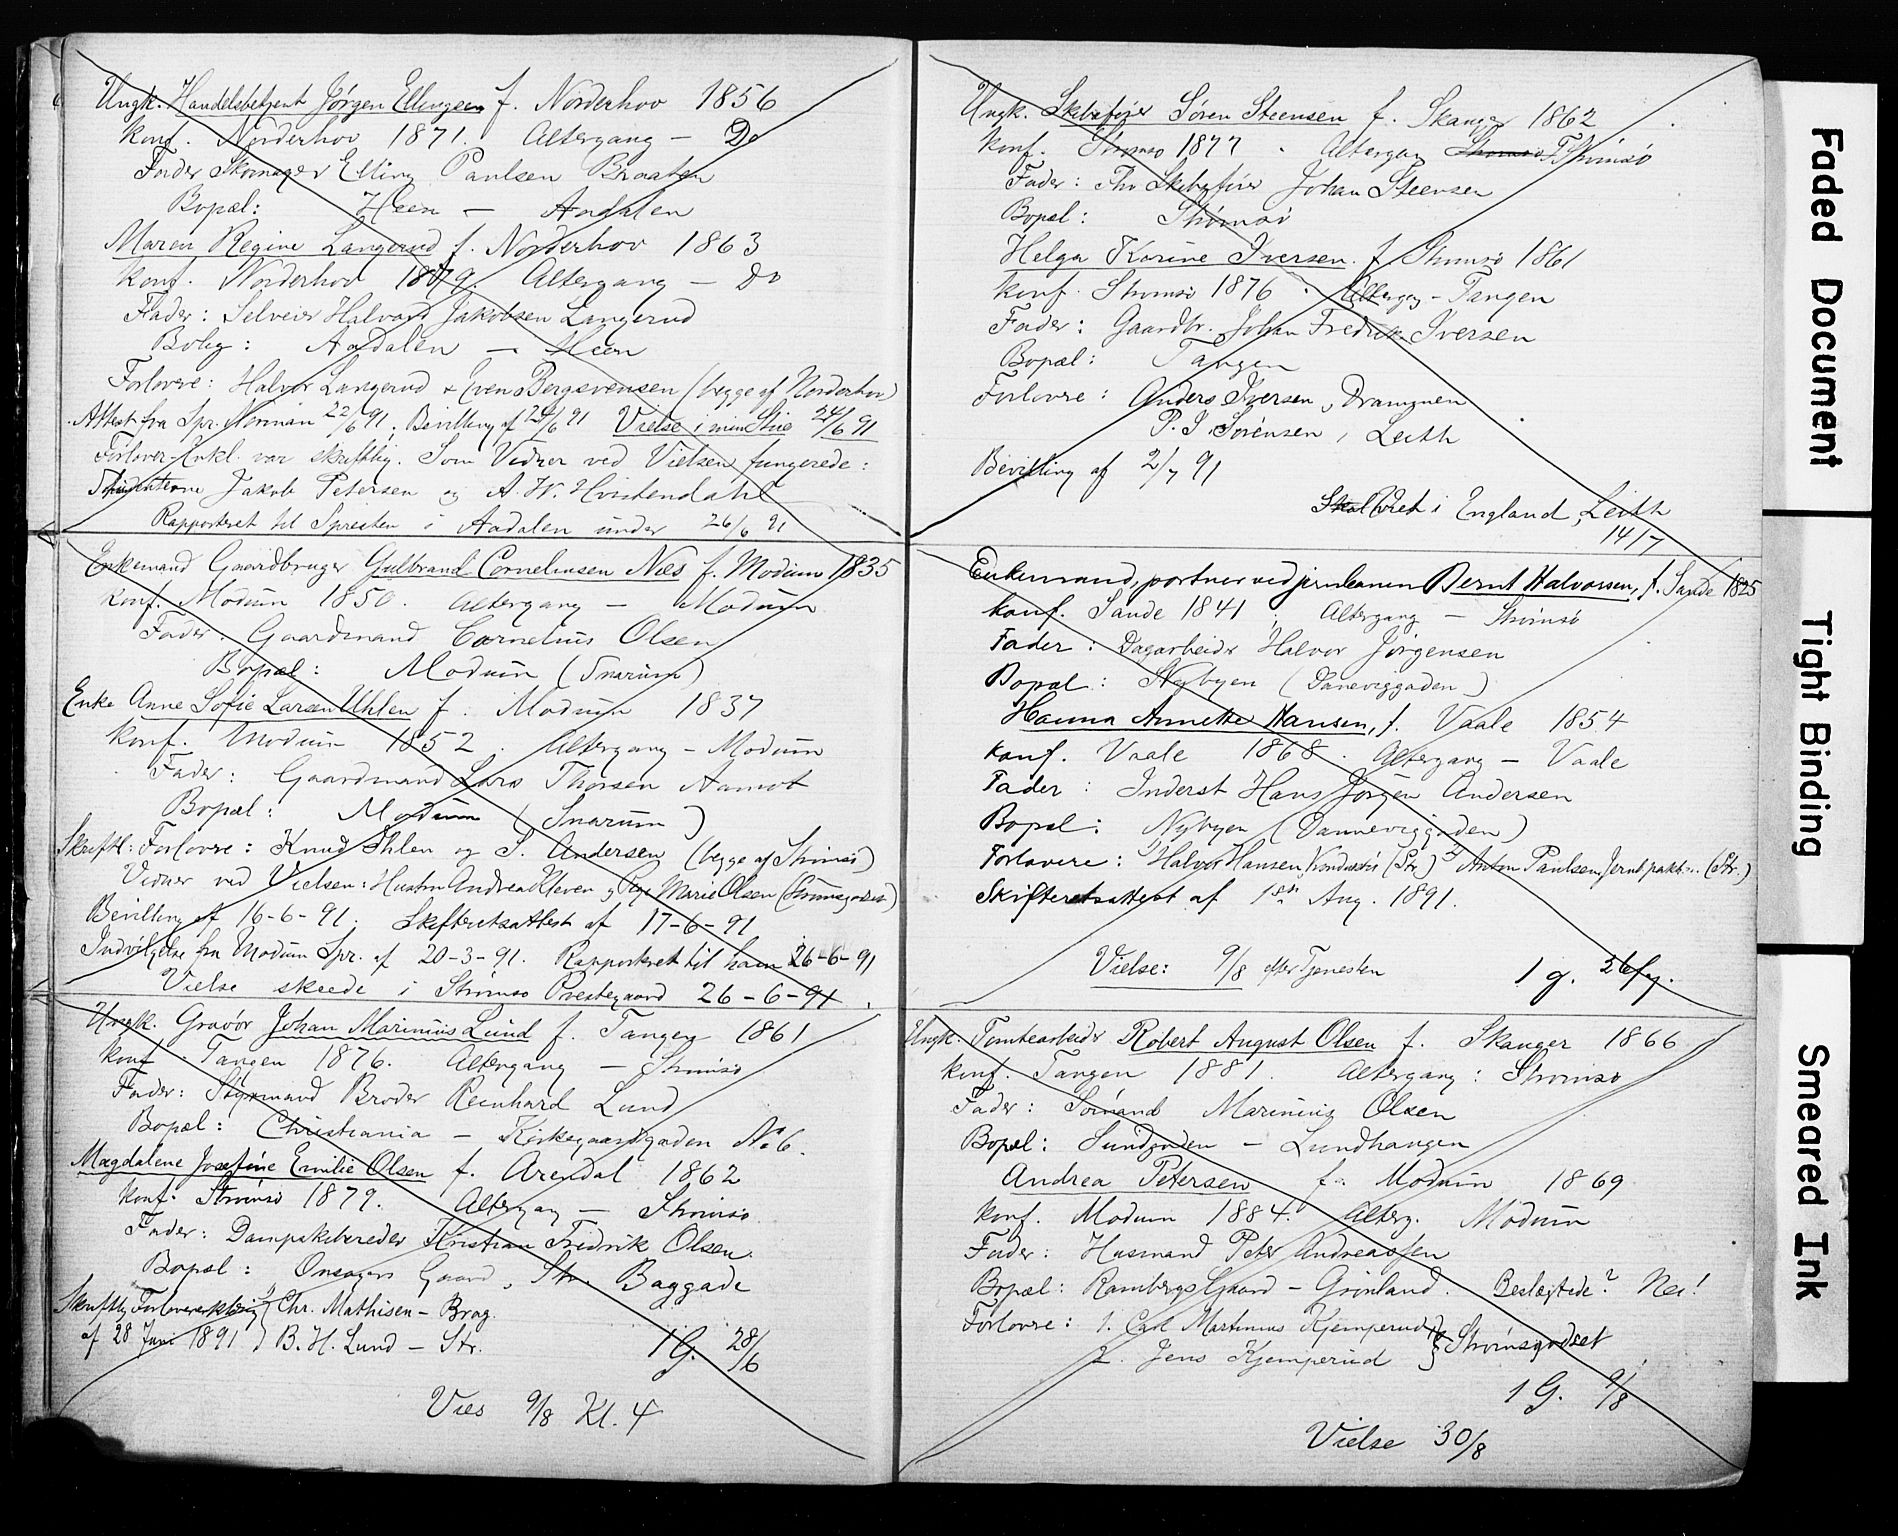 Ungk. Handelsbetjent Jørgen Ellingsen f. Norderhov 1856
Konf. Norderhov 1871. Altergang — Do
Fader Skomager Elling Paulsen Braaten
Bopæl: Heen — Aadalen
Maren Regine Langerud f. Norderhov 1863
Konf. Norderhov 1879. Altergang — Do
Fader: Selveier Halvard Jakobsen Langerud
Bolig: Aadalen — Heen
Forlovre: Halvor Langerud & Even Bergsvensen (begge af Norderhov)
Attest fra Spr. Norman 22/6 91. Bevilling af 24/6 91 Vielse i min Stue 24/6 91
Forlover-Erkl. var skriftlig. Som Vidner ved Vielsen fungerede:
Studenterne Jakob Petersen og A. W. Hvistendahl
Rapporteret til Spresten i Aadalen under 26/6 91
Enkemand Gaardbruger Gulbrand Corneliusen Næs f. Modum 1835
Konf. Modum 1850. Altergang — Modum
Fader. Gaardmand Cornelius Olsen
Bopæl: Modum (Snarum)
Enke Anne Sofie Larsen Uhlen f. Modum 1837
Konf. Modum 1852. Altergang — Modum
Fader: Gaardmand Lars Thorsen Aamot
Bopæl: Modum (Snarum)
Skriftl: Forlovre: Knud Ihlen og S. Andersen (begge af Strømsø)
Vidner ved Vielsen: Hustru Andrea Kleven og Pige Marie Olsen (Strømsgodset)
Bevilling af 16-6-91. Skifteretsattest af 17-6-91
Indvilgelse fra Modum Spr. af 20-3-91. Rapporteret til ham 26-6-91
Vielse skeede i Strømsø Prestegaard 26-6-91.
Ungk. Gravør Johan Marinius Lund f. Tangen 1861
Konf. Tangen 1876. Altergang — Strømsø
Fader: Styrmand Broder Reinhard Lund
Bopæl: Christiania — Kirkegaardsgaden No 6.
Magdalene Josefine Emilie Olsen f. Arendal 1862
Konf. Strømsø 1879. Altergang — Strømsø
Fader: Dampskibsreder Kristian Fredrik Olsen.
Bopæl: Onsagers Gaard, Str. Baggade
Skriftlig Forlovererklæring Chr. Mathisen — Brag.
af 28 Juni 1891 B. H. Lund — Str.
1 G. 28/6
Vies 9/8 Kl. 4
Ungk. Skibsfører Søren Steensen f. Skanger 1862
Konf. Strømsø 1877. Altergang Strømsø T. Strømsø
Fader: Skibsfører Johan Steensen
Bopæl: Strømsø
Helga Karine Iversen. f. Strømsø 1861
Konf. Strømsø 1876. Altergg — Tangen
Fader: Gaardbr. Johan Fredrik Iversen
Bopæl: Tangen
Forlovre: Anders Iversen, Drammen
P. I. Sørensen, Leith
Bevilling af 2/7 91
Skal Viet i England, Leith
14/7
Enkemand, portner ved jernbanen Bernt Halvorsen, f. Sande 1825
Konf. Sande 1841. Altergang — Strømsø
Fader: Dagarbeider Halvor Jørgensen
Bopæl: Nybyen (Daneviggaden)
Hanna Annette Hansen, f. Vaale 1854
Konf. Vaale 1868. Altergang — Vaale
Fader: Inderst Hans Jørgen Andersen
Bopæl: Nybyen (Danneviggaden)
Forlovere: 1) Halvor Hansen, Konduktør (Str.) 2) Anton Paulsen, Jernb.pakm. (Str.)
Skifteretsattest af 1st Aug. 1891.
Vielse: 9/8 efter Tjenesten 1 g.
Ungk. Tomtearbeider Robert August Olsen f. Skanger 1866
Konf. Tangen 1881. Altergang: Strømsø
Fader: Sømand Marinius Olsen
Bopæl: Sundgaden — Lundhaugen
Andrea Petersen f. Modum 1869
Konf. Modum 1884. Alterg. Modum
Fader: Husmand Peter Andreassen
Bopæl: Rambergs Gaard — Grønland. Beslægtede? Nei!
Forlovre: 1. Carl Martinius Kjemperud
2. Jens Kjemperud } Strømsgodset
1 G. 9/8
Vielse 30/8
Faded Document
Tight Binding
Smeared Ink